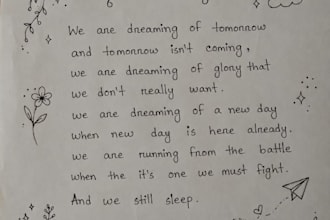 We are dreaming of tomorrow
and tomorrow isn't coming,
we are dreaming of glory that
we don't really want.
we are dreaming of a new day
when new day is here already.
we are running from the battle
when the it's one we must fight.
And we still sleep.